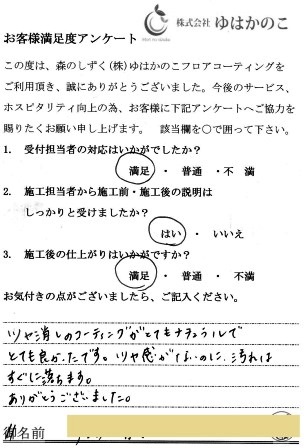 株式会社 ゆはかのこ
お客様満足度アンケート
この度は、森のしずく(株)ゆはかのこフロアコーティングを
ご利用頂き、誠にありがとうございました。今後のサービス、
ホスピタリティ向上の為、お客様に下記アンケートへご協力を
賜りたくお願い申し上げます。 該当欄を○で囲って下さい。
1. 受付担当者の対応はいかがでしたか?
満足 ・ 普通 ・ 不 満
2. 施工担当者から施工前・施工後の説明は
しっかりと受けましたか?
はい ・ いいえ
3. 施工後の仕上がりはいかがですか?
満足 ・ 普通 ・ 不満
お気付きの点がございましたら、ご記入ください。
ツヤ消しのコーティングがとてもナチュラルで
とても良かったです。ツヤ感がないのに、汚れは
すぐに落ちます。
ありがとうございました。
御名前